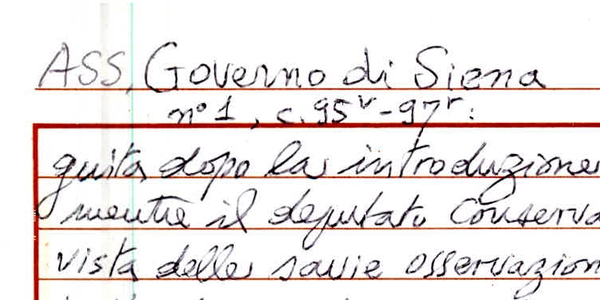 ASS, Governo di Siena
nº 1, c. 95v-97r:
guita dopo la introduzione
mentre il deputato Conserva
vista delle savie osservazion